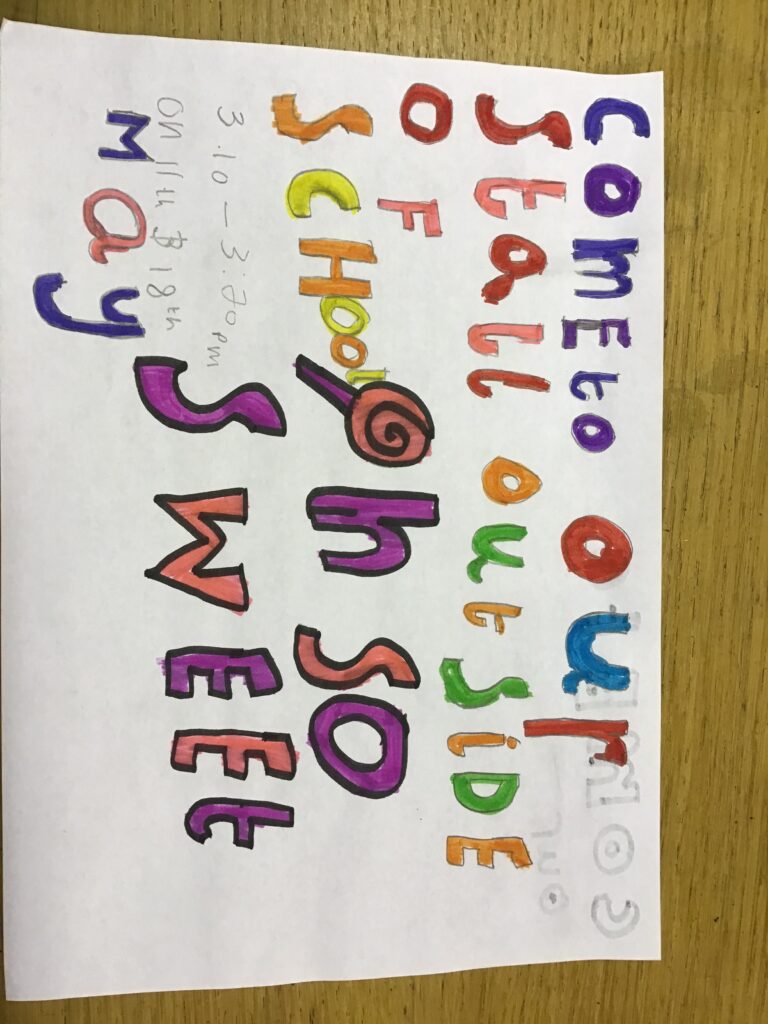 COME to our
Stall outSiDE
OF
SCHOOL
Oh SO
SWEEt
3.10 – 3:20pm
On 11th & 18th
May